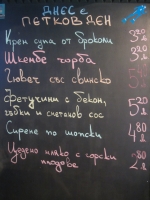 ДНЕС Е
ПЕТКОВ ДЕН
Крем супа от броколи 3²⁰
Шкембе чорба 3²⁰
Гювеч със свинско
Фетучини с бекон,
гъбки и сметанов сос 5²⁰
Сирене по шопски 4⁸⁰
Цедено мляко с горски
плодове